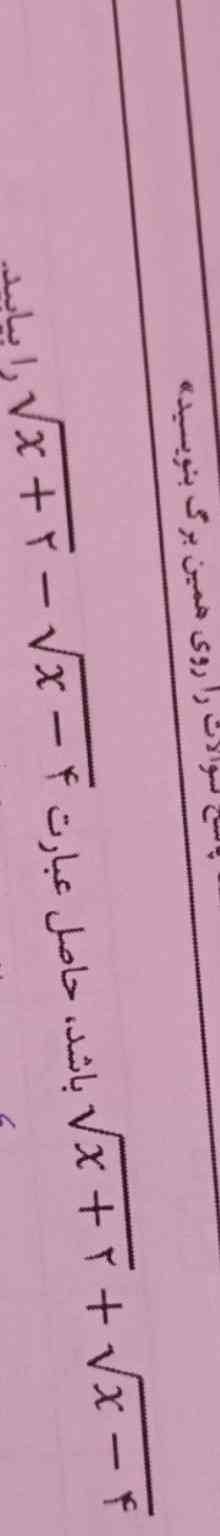 پاسخ سوالات را روی همین برگ بنویسید»
√x + ۲ + √x − ۴ باشد، حاصل عبارت √x + ۲ − √x − ۴ را بیابید.